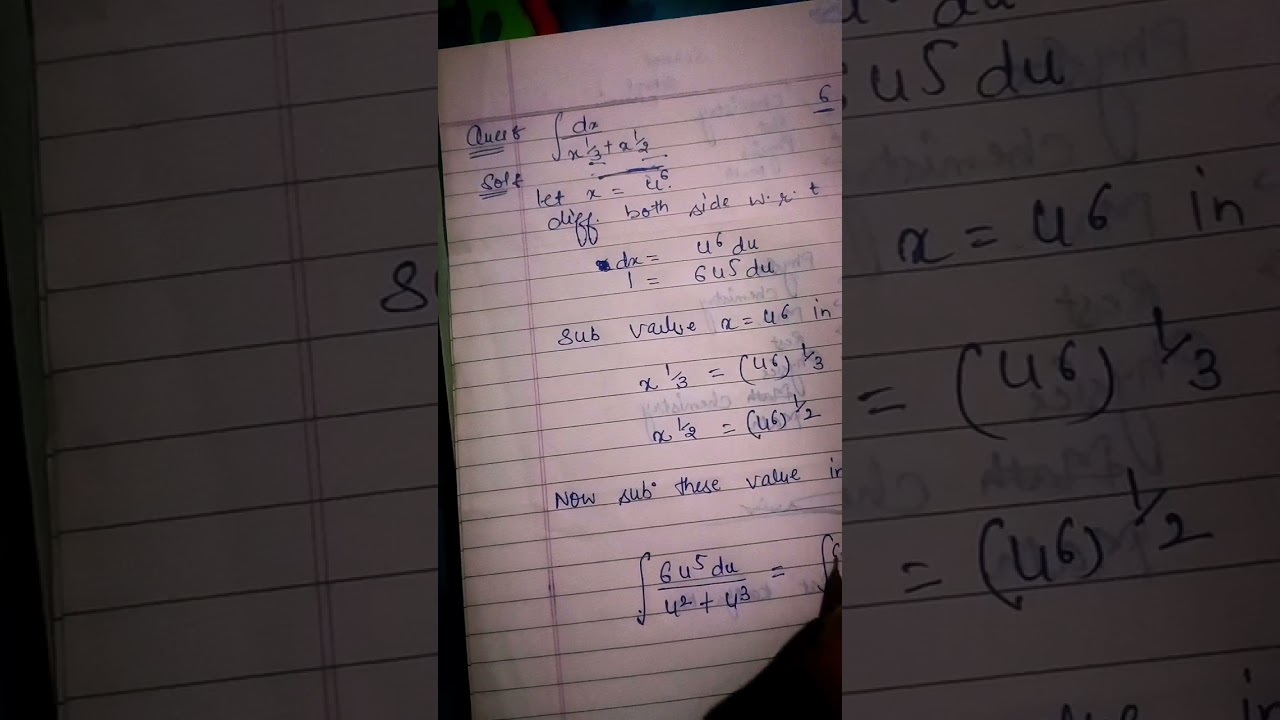 6
Ques: ∫ dx / x^1/3 + x^1/2
Sol:
let x = u^6.
diff. both side w.r.t
dx = u^6 du
1 = 6u^5 du
sub value x = u^6 in
x^1/3 = (u^6)^1/3
x^1/2 = (u^6)^1/2
Now sub. these value in
∫ 6u^5 du / u^2 + u^3 = ∫
u^5 du
x = u^6 in
= (u^6)^1/3
= (u^6)^1/2